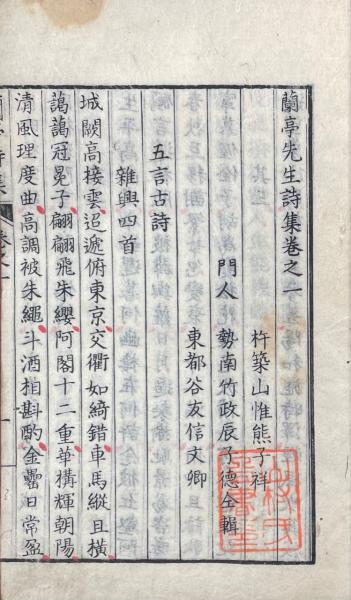 蘭亭先生詩集卷之一
杵築山惟熊子祥
門人 勢南竹政辰子德仝輯
東都谷友信文卿
五言古詩
雜興四首
城闕高接雲迢遞俯東京交衢如綺錯車馬縱且橫
藹藹冠冕子翩翩飛朱纓阿閣十二重華構輝朝陽
清風理度曲高調被朱繩斗酒相斟酌金罍日常盈